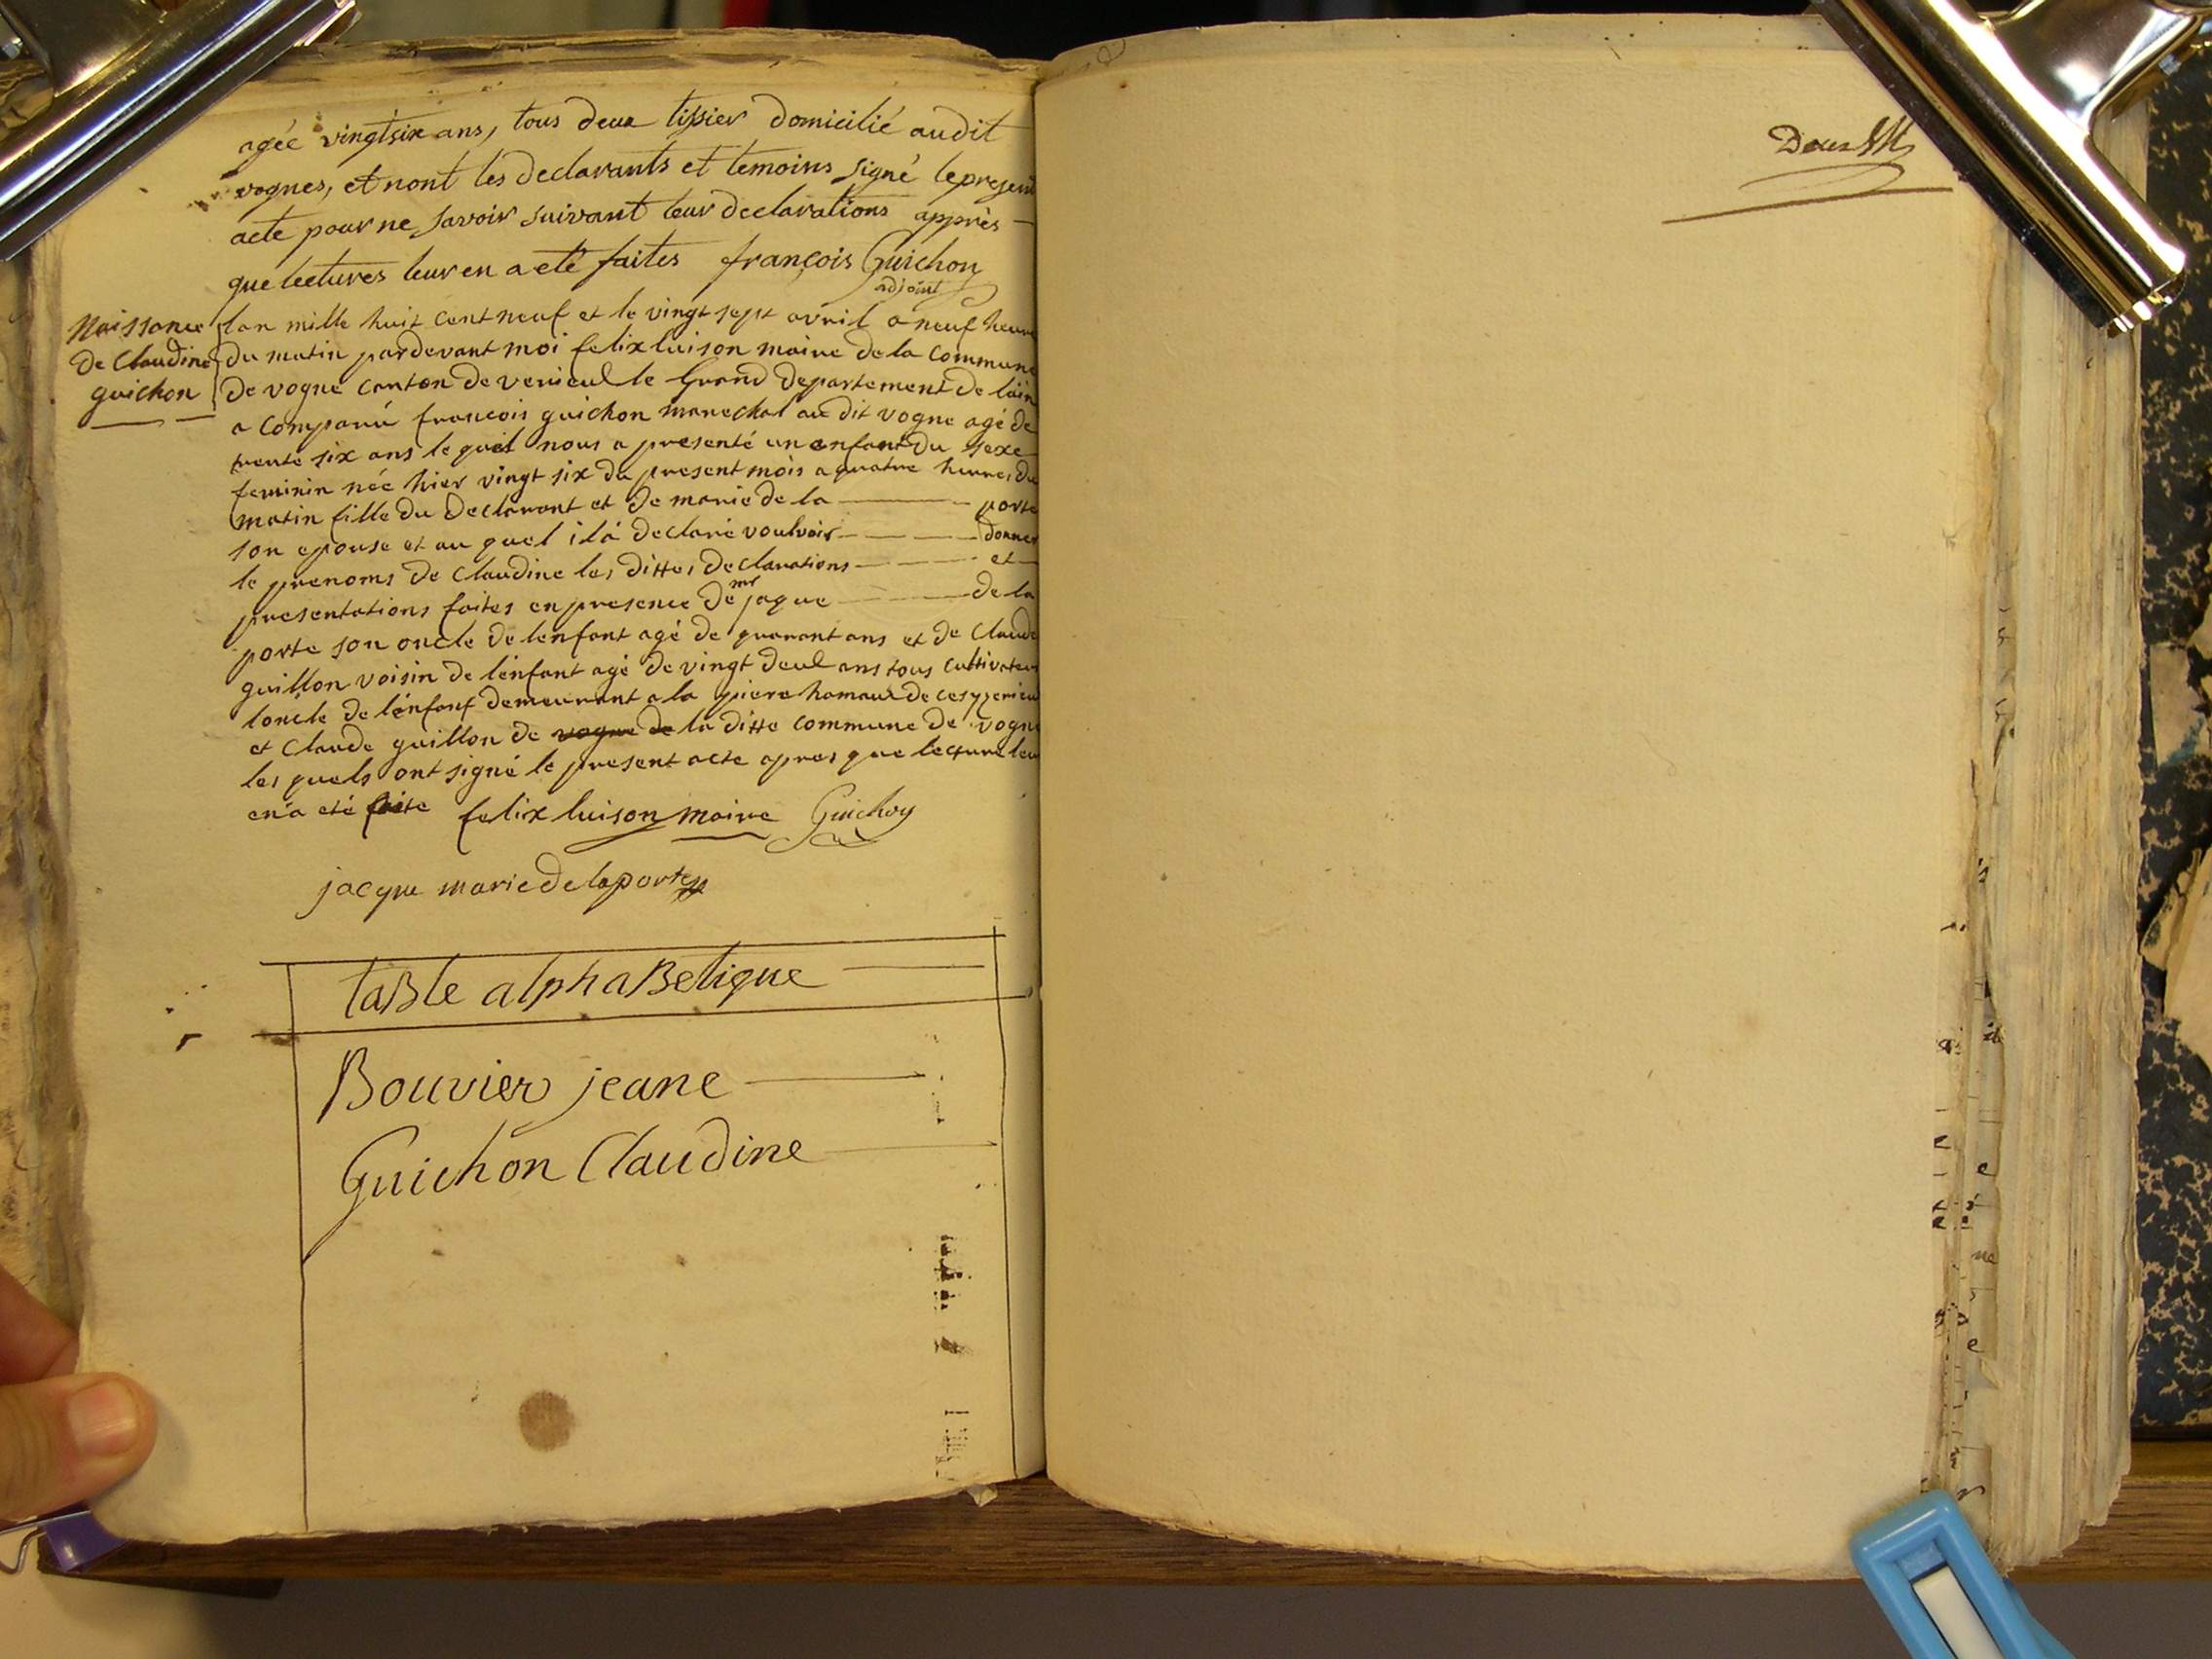 agée vingtsix ans, tous deux tissier domicilié audit
vognes, et nont les declarants et temoins signé le present
acte pour ne savoir suivant leur declarations apprès —
que lectures leur en a eté faites françois Guichon
adjoint
Naissance
de Claudine
guichon
lan mille huit cent neuf et le vingt sept avril a neuf heure
du matin pardevant moi felix luison maire de la commune
de vogne canton de verieul le Grand departement de lain
a comparu francois guichon marechal au dit vogne agé de
trente six ans le quel nous a presenté un enfant du sexe
feminin née hier vingt six du present mois a quatre heures du
matin fille du declarant et de marie de la — porte
son epouse et au quel il a declaré voulvoir — donner
le prenoms de Claudine les dittes declarations — et
presentations faites en presence de mr jaque — de la
porte son oncle de lenfant agé de quarant ans et de Claude
guillon voisin de lenfant agé de vingt deul ans tous cultivateur
loncle de lenfant demeurant a la piere hamaux de
et Claude guillon de vogne de la ditte commune de vogne
les quels ont signé le present acte apres que lecture leur
en a eté faite felix luison maire Guichon
jacque marie de laporte
taBle alphaBetique
Bouvier jeane
Guichon Claudine